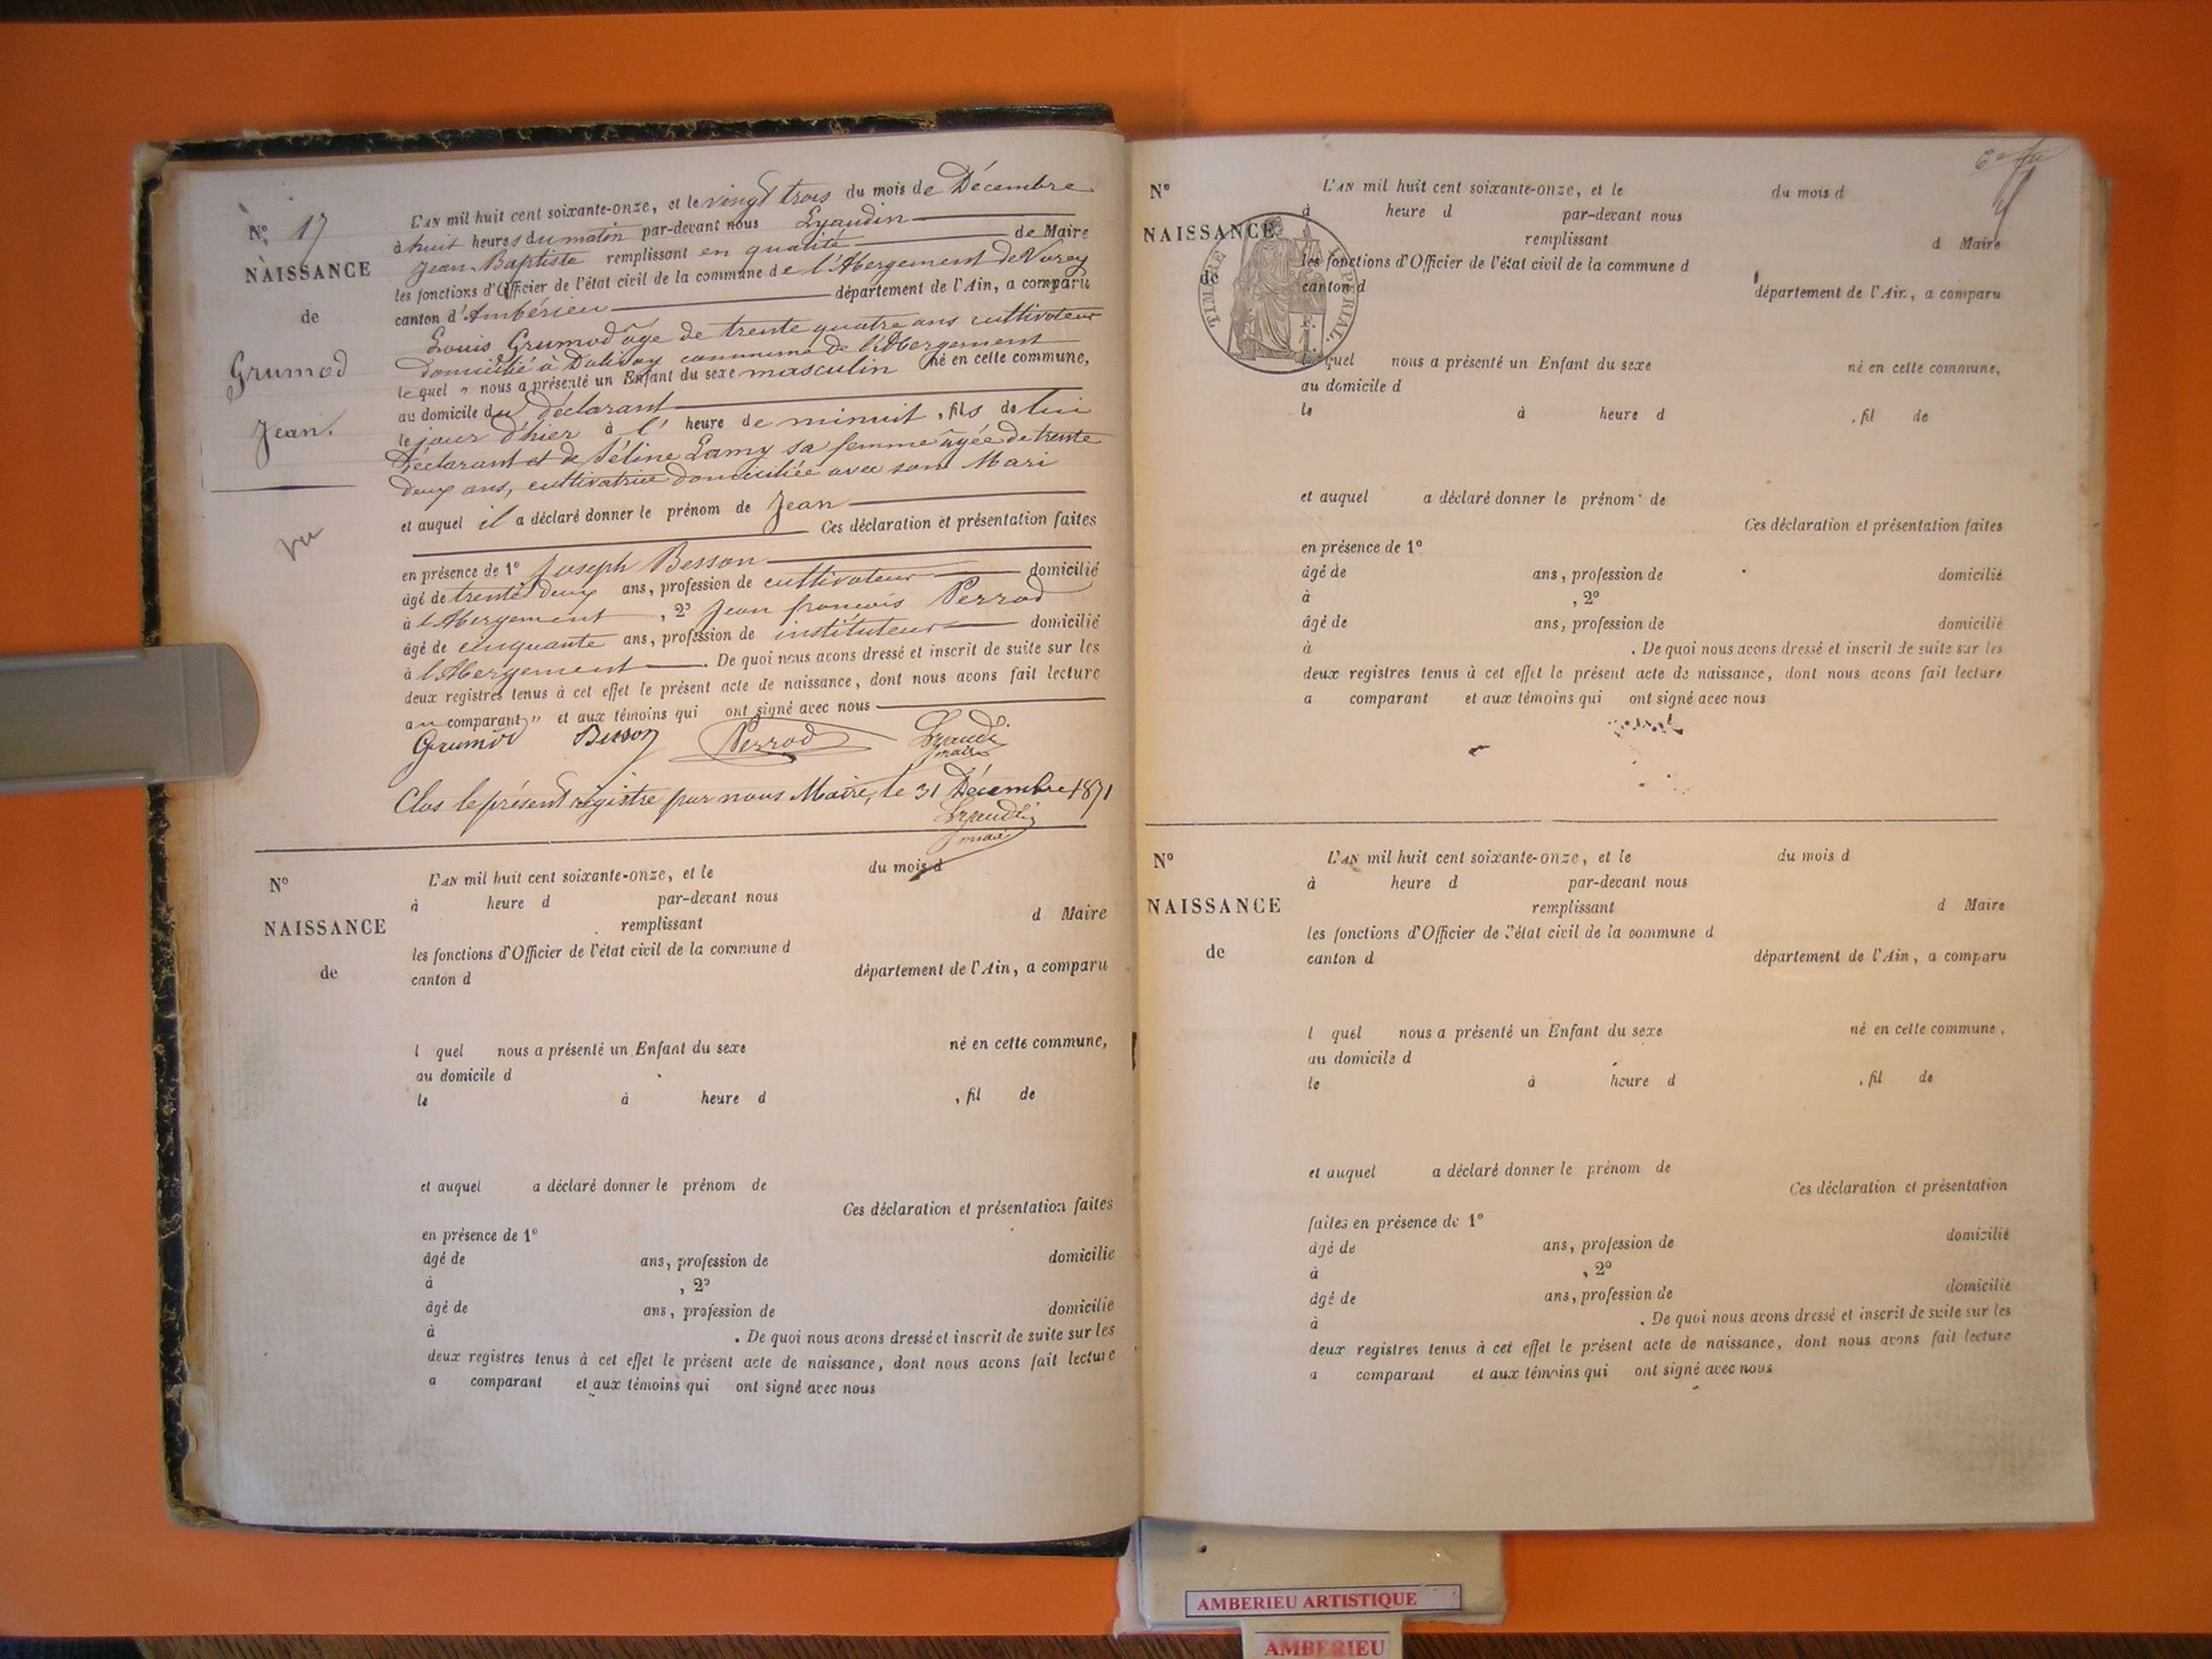 Nº 17
NAISSANCE
de
Grumod
Jean.
vu
L'AN mil huit cent soixante-onze, et le vingt trois du mois de Décembre
à huit heures du matin par-devant nous Lyaudin
Jean-Baptiste remplissant en qualité de Maire
les fonctions d'Officier de l'état civil de la commune de l'Abergement de Varey
canton d'Ambérieu département de l'Ain, a comparu
Louis Grumod âgé de trente quatre ans cultivateur
domicilié à commune de l'Abergement
lequel " nous a présenté un Enfant du sexe masculin né en cette commune,
au domicile du déclarant
le jour d'hier à l' heure de minuit, fils de lui
déclarant et de Séline Lamy sa femme âgée de trente
deux ans, cultivatrice domiciliée avec son Mari
et auquel il a déclaré donner le prénom de Jean
Ces déclaration et présentation faites
en présence de 1º Joseph Besson
âgé de trente deux ans, profession de cultivateur domicilié
à l'Abergement, 2º Jean françois Perrod
âgé de cinquante ans, profession de instituteur domicilié
à l'Abergement. De quoi nous avons dressé et inscrit de suite sur les
deux registres tenus à cet effet le présent acte de naissance, dont nous avons fait lecture
au comparant " et aux témoins qui ont signé avec nous
Grumod Besson Perrod Lyaudin
maire
Clos le présent registre par nous Maire, le 31 Décembre 1871
Lyaudin
maire
Nº
NAISSANCE
de
L'AN mil huit cent soixante-onze, et le du mois d
à heure d par-devant nous
remplissant d Maire
les fonctions d'Officier de l'état civil de la commune d
canton d département de l'Ain, a comparu
l quel nous a présenté un Enfant du sexe né en cette commune,
au domicile d
le à heure d , fil de
et auquel a déclaré donner le prénom de
Ces déclaration et présentation faites
en présence de 1º
âgé de ans, profession de domicilié
à , 2º
âgé de ans, profession de domicilié
à . De quoi nous avons dressé et inscrit de suite sur les
deux registres tenus à cet effet le présent acte de naissance, dont nous avons fait lecture
a comparant et aux témoins qui ont signé avec nous
Nº
NAISSANCE
de
TIMBRE IMPERIAL
L'AN mil huit cent soixante-onze, et le du mois d
à heure d par-devant nous
remplissant d Maire
les fonctions d'Officier de l'état civil de la commune d
canton d département de l'Ain, a comparu
l quel nous a présenté un Enfant du sexe né en cette commune,
au domicile d
le à heure d , fil de
et auquel a déclaré donner le prénom de
Ces déclaration et présentation faites
en présence de 1º
âgé de ans, profession de domicilié
à , 2º
âgé de ans, profession de domicilié
à . De quoi nous avons dressé et inscrit de suite sur les
deux registres tenus à cet effet le présent acte de naissance, dont nous avons fait lecture
a comparant et aux témoins qui ont signé avec nous
Nº
NAISSANCE
de
L'AN mil huit cent soixante-onze, et le du mois d
à heure d par-devant nous
remplissant d Maire
les fonctions d'Officier de l'état civil de la commune d
canton d département de l'Ain, a comparu
l quel nous a présenté un Enfant du sexe né en cette commune,
au domicile d
le à heure d , fil de
et auquel a déclaré donner le prénom de
Ces déclaration et présentation
faites en présence de 1º
âgé de ans, profession de domicilié
à , 2º
âgé de ans, profession de domicilié
à . De quoi nous avons dressé et inscrit de suite sur les
deux registres tenus à cet effet le présent acte de naissance, dont nous avons fait lecture
a comparant et aux témoins qui ont signé avec nous
AMBERIEU ARTISTIQUE
AMBERIEU